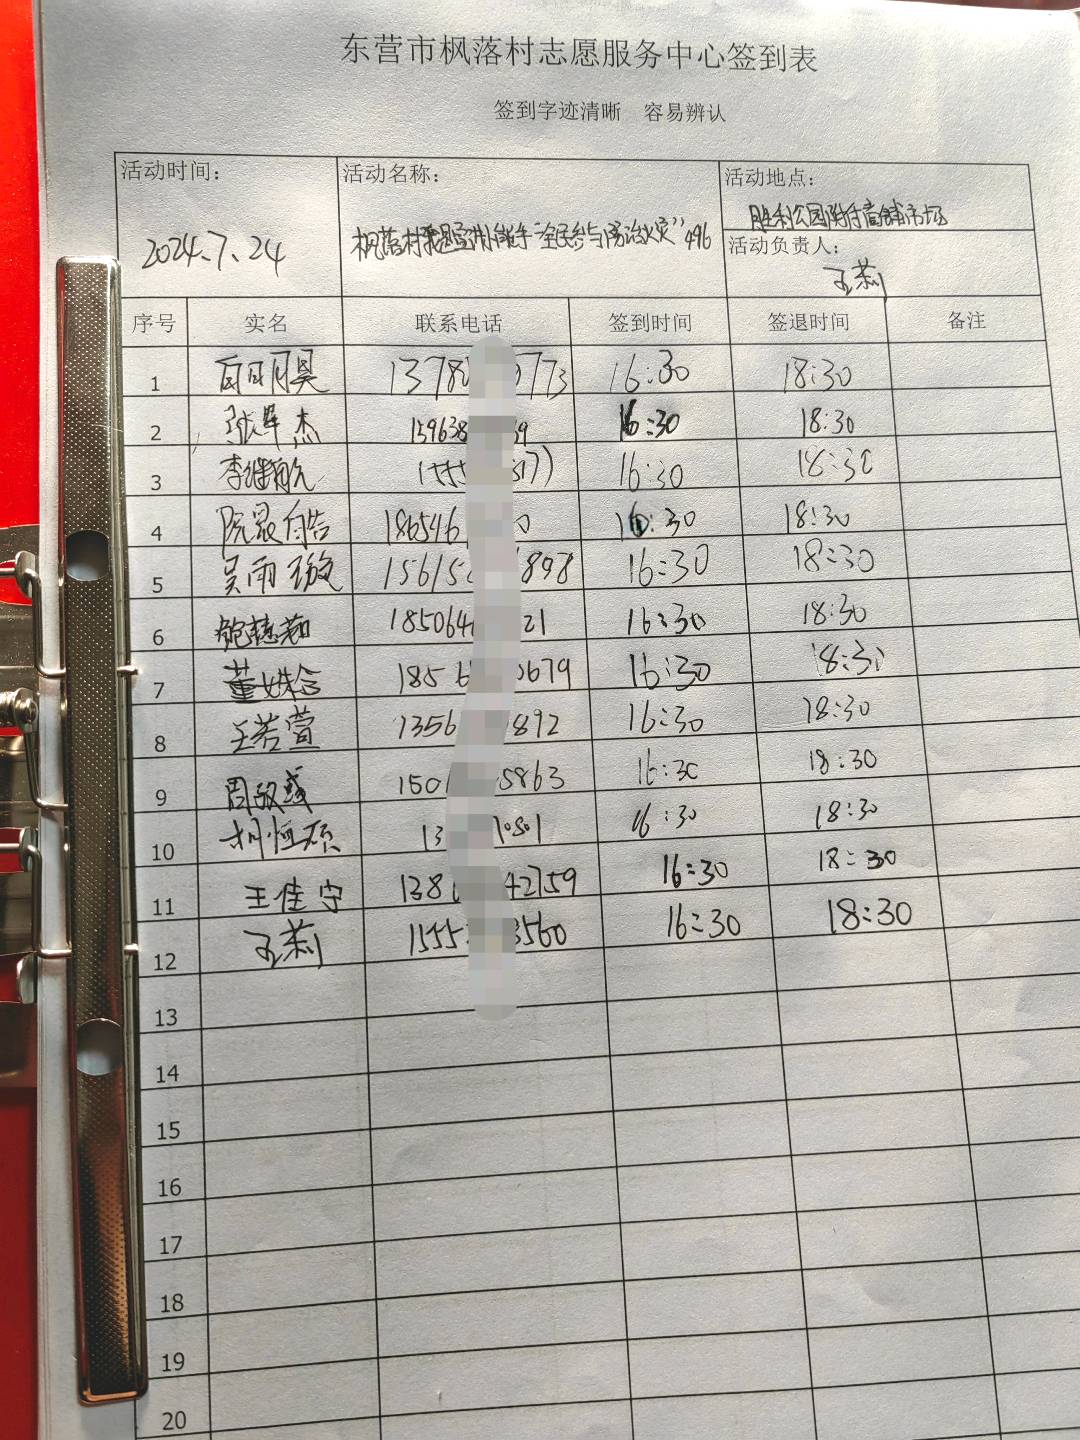 东营市枫落村志愿服务中心签到表
签到字迹清晰 容易辨认
活动时间： 活动名称： 活动地点：
胜利公园附近商铺市场
2024.7.24 枫落村 “全民参与防治火灾” 496
活动负责人：
王莉
序号 实名 联系电话 签到时间 签退时间 备注
1 1378 773 16:30 18:30
2 张军杰 159638 39 16:30 18:30
3 李继航 1555 16:30 18:30
4 186546 0 16:30 18:30
5 吴雨璇 15615 898 16:30 18:30
6 185064 21 16:30 18:30
7 董姝含 1856 0679 16:30 18:30
8 王若萱 1356 892 16:30 18:30
9 1501 5863 16:30 18:30
10 13 16:30 18:30
11 王佳宁 1386 42759 16:30 18:30
12 王莉 1555 3560 16:30 18:30
13
14
15
16
17
18
19
20